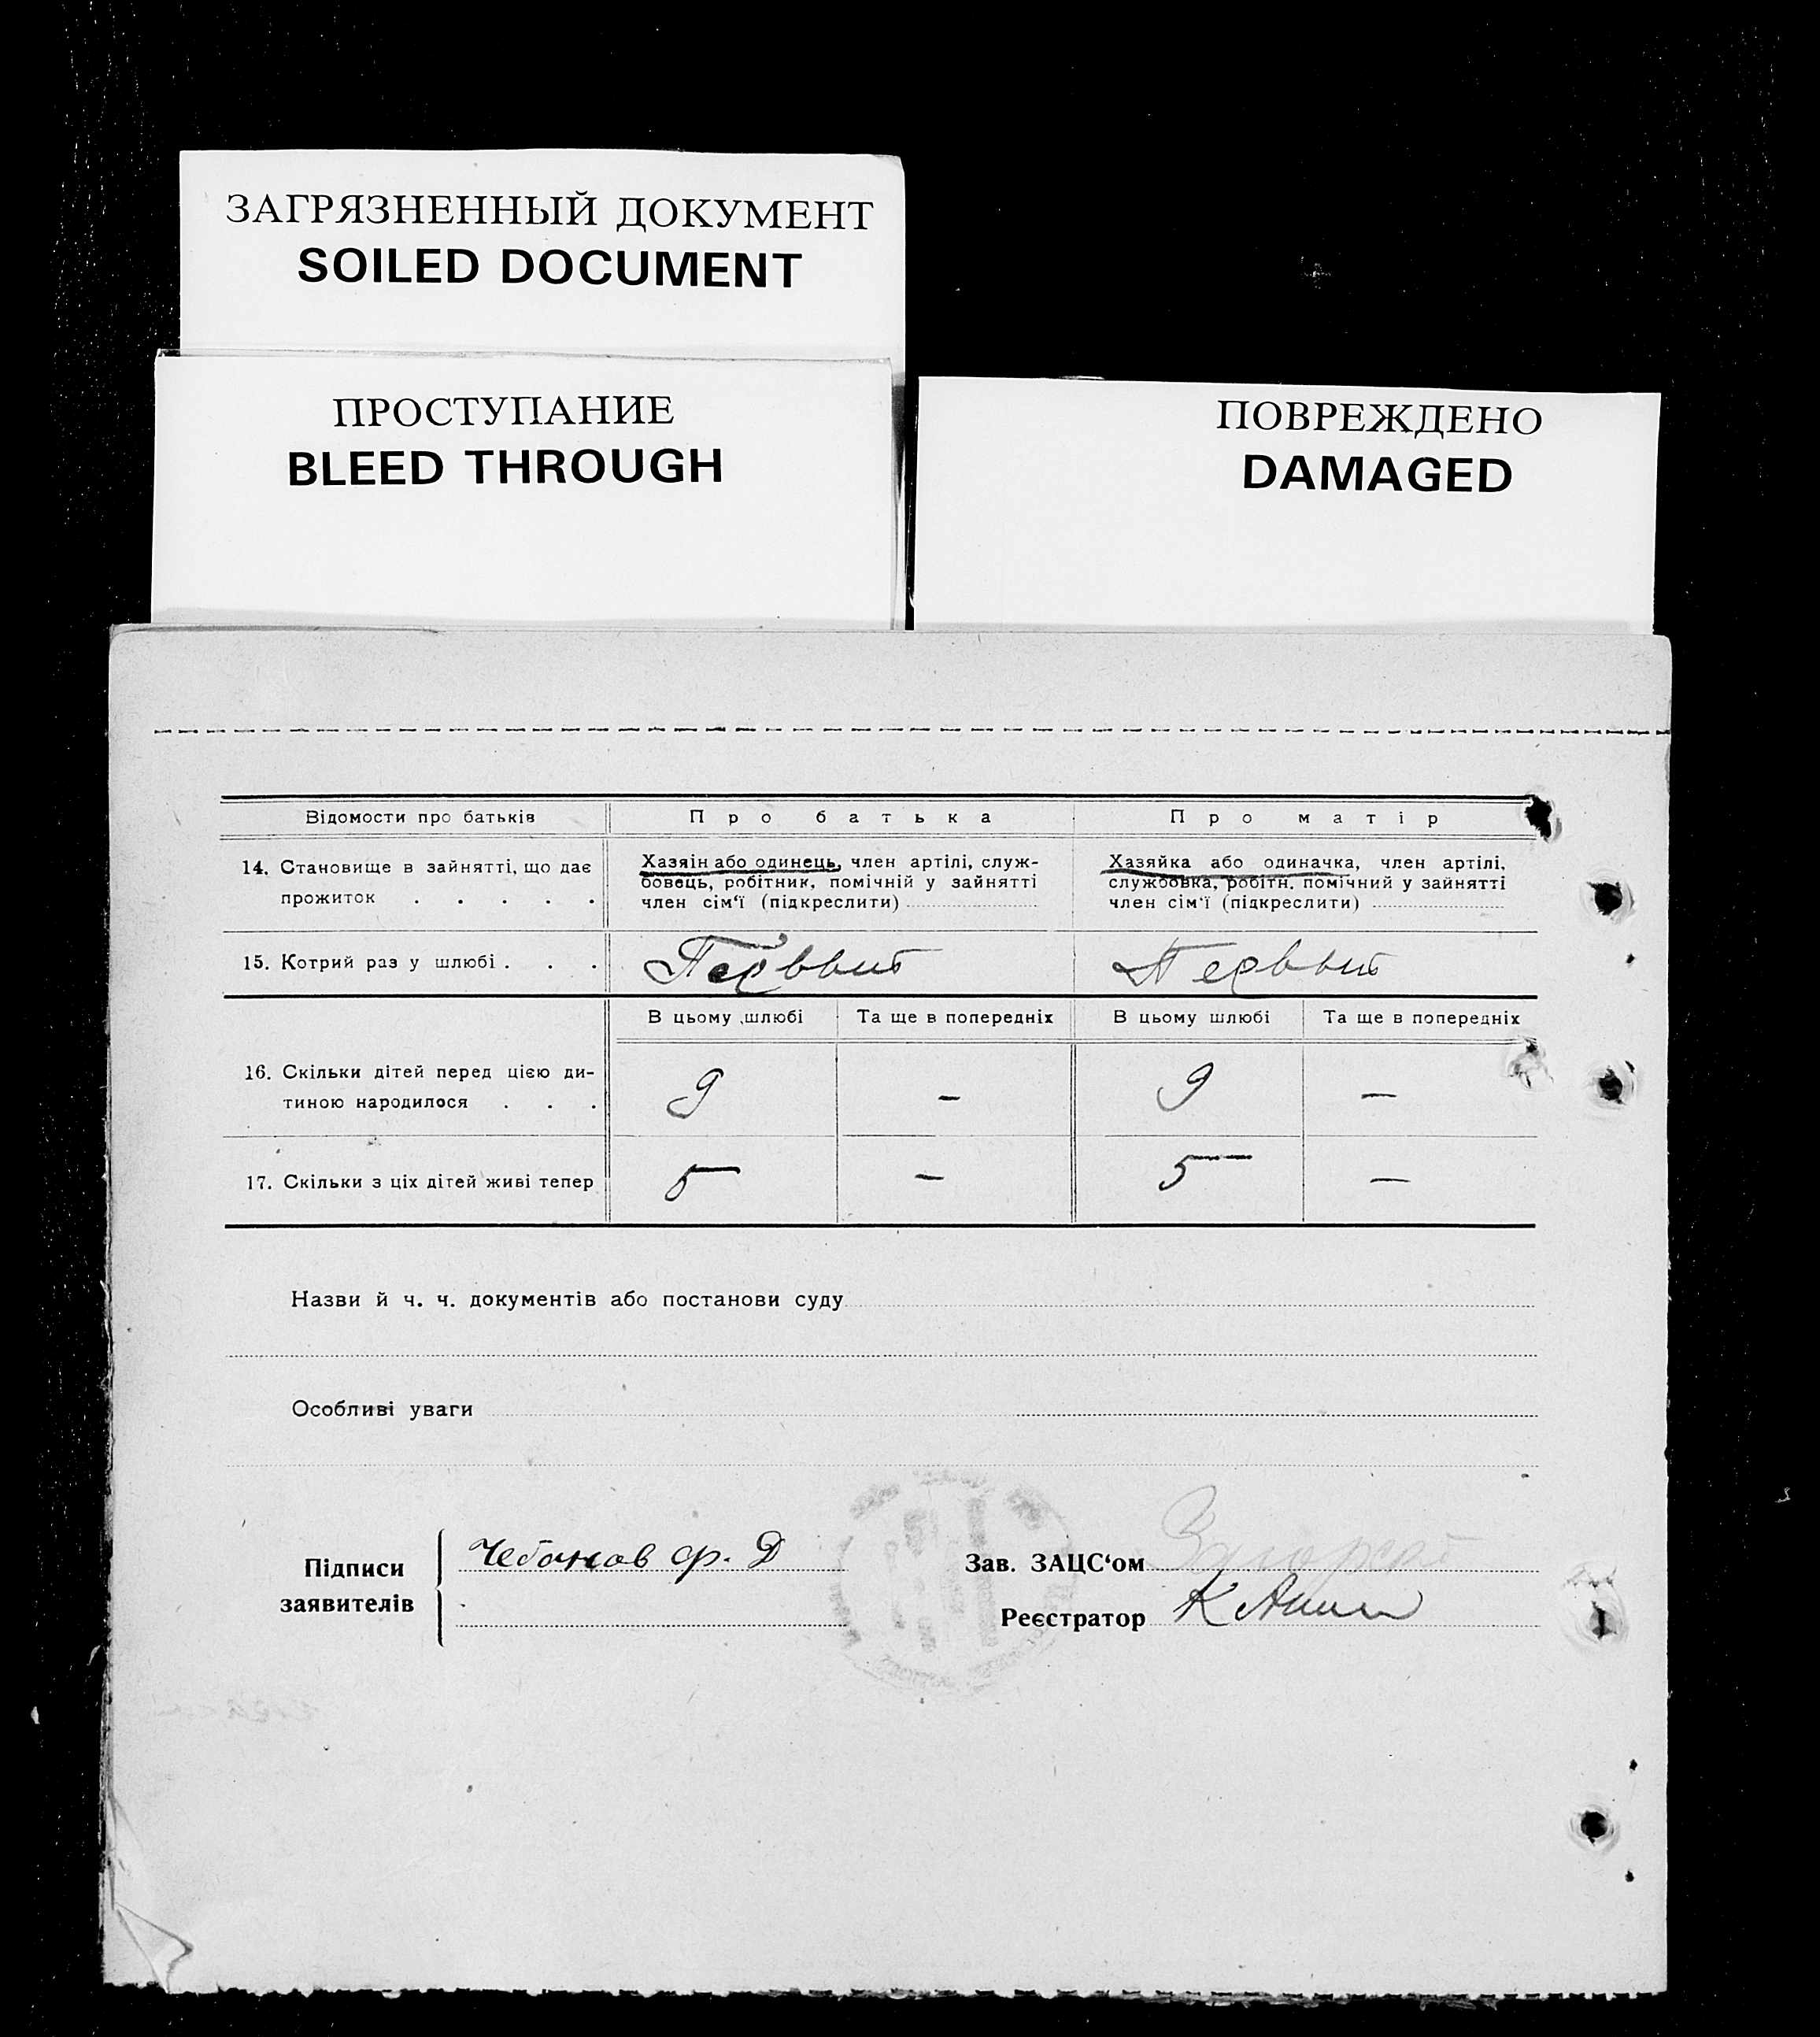 ЗАГРЯЗНЕННЫЙ ДОКУМЕНТ
SOILED DOCUMENT
ПРОСТУПАНИЕ
BLEED THROUGH
ПОВРЕЖДЕНО
DAMAGED
Відомости про батьків Про батька Про матір
14. Становище в зайнятті, що дає прожиток . . . . .
Хазяін або одинець, член артілі, служ-
бовець, робітник, помічній у зайнятті
член сім‘ї (підкреслити)
Хазяйка або одиначка, член артілі,
службовка, робітн. помічний у зайнятті
член сім‘ї (підкреслити)
15. Котрий раз у шлюбі . . . Первый Первый
В цьому шлюбі Та ще в попередніх В цьому шлюбі Та ще в попередніх
16. Скільки дітей перед цією ди-
тиною народилося . . . 9 — 9 —
17. Скільки з ціх дітей живі тепер 5 — 5 —
Назви й ч. ч. документів або постанови суду
Особливі уваги
Підписи
заявителів
Чебанов Ф. Д
Зав. ЗАЦС‘ом
Реєстратор К